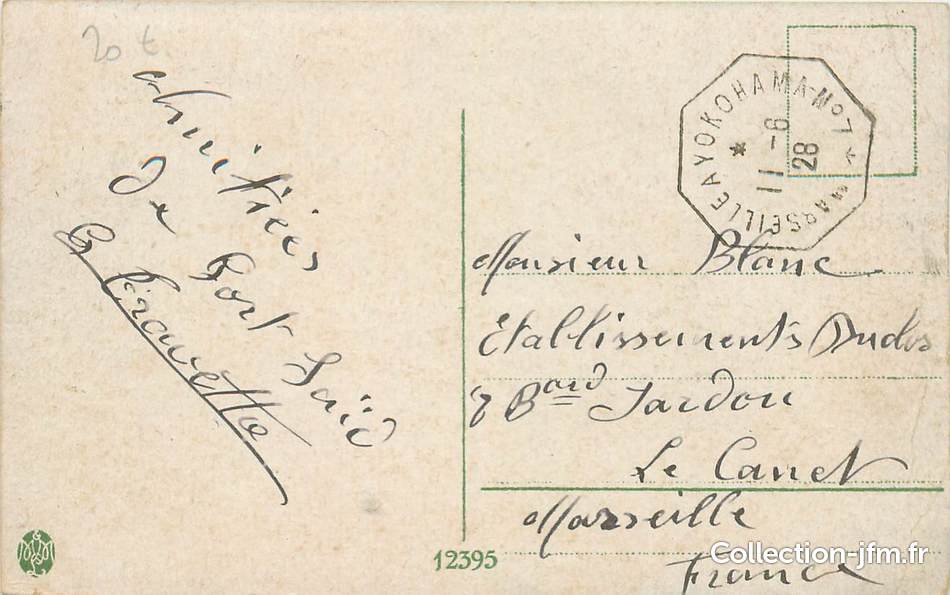 20 t
Amitiées
de Port Saïd
MARSEILLE A YOKOHAMA - No 7
MARSEILLE
11 - 6
28
Monsieur Blanc
Etablissements
7 Bard Jardon
Le Canet
Marseille
France
12395
Collection-jfm.fr